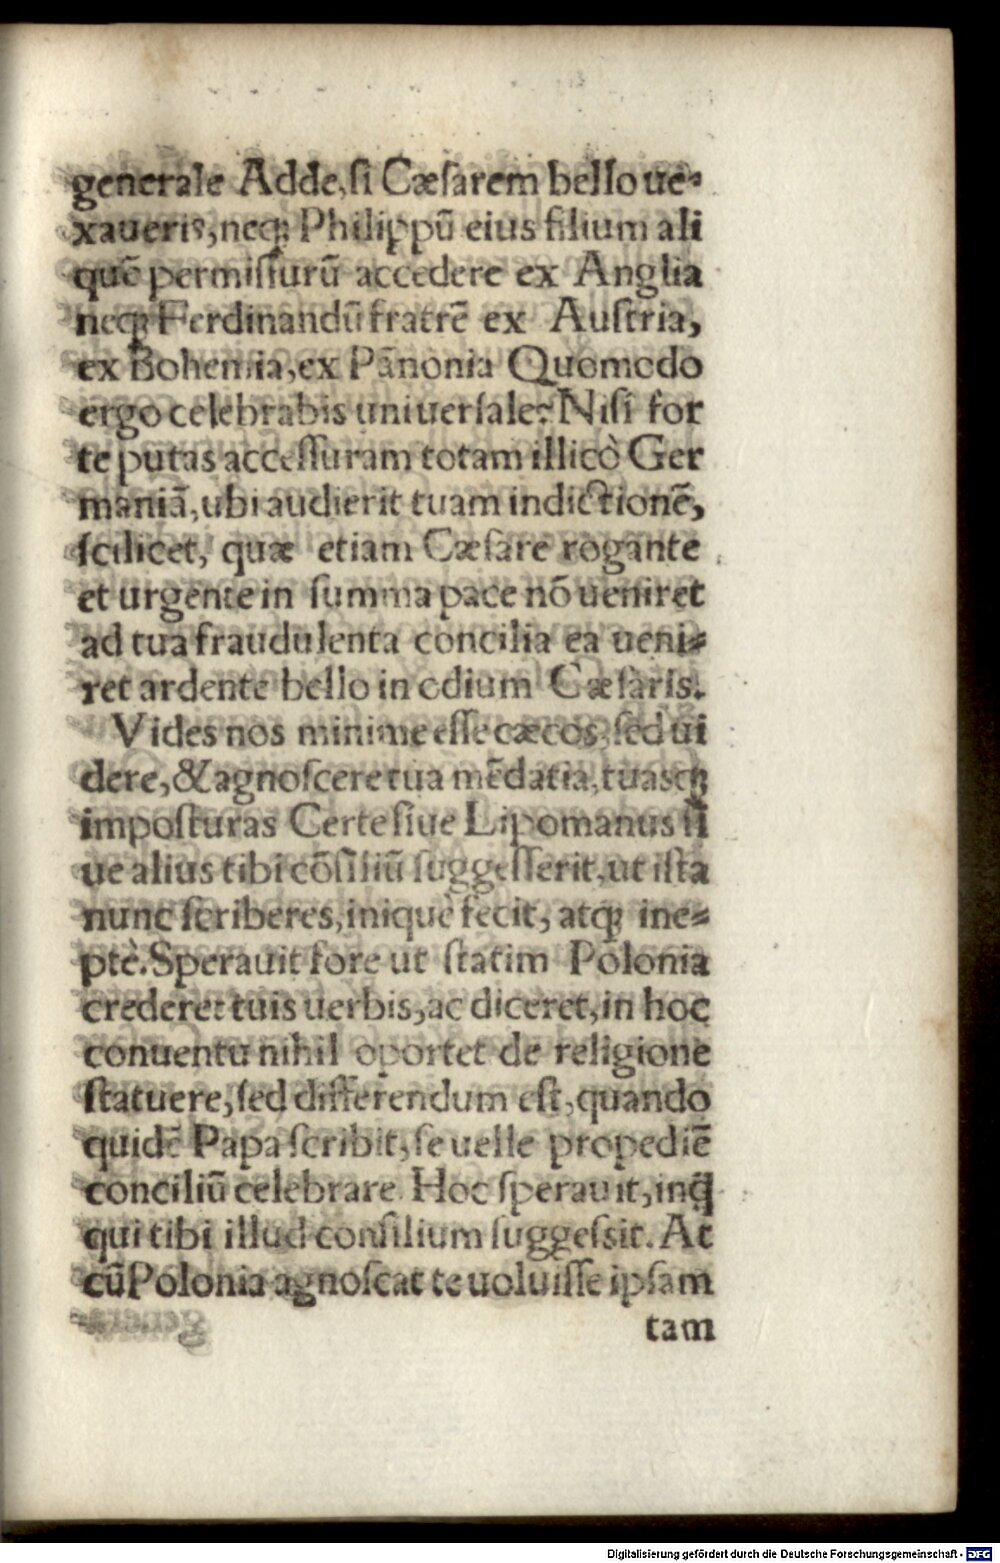 generale Adde, ſi Cæſarem bello ue⸗
xaueris, neq; Philippū eius filium ali
quē permiſſurū accedere ex Anglia
neq; Ferdinandū fratrē ex Auſtria,
ex Bohemia, ex Pānonia Quomodo
ergo celebrabis uniuerſale? Niſi for
te putas acceſſuram totam illicò Ger
maniā, ubi audierit tuam indictionē,
ſcilicet, quæ etiam Cæſare rogante
et urgente in ſumma pace nō ueniret
ad tua fraudulenta concilia ea ueni⸗
ret ardente bello in odium Cæſaris.
Vides nos minime eſſe cæcos, ſed ui
dere, & agnoſcere tua mēdatia, tuasq;
impoſturas Certe ſiue Lipomanus ſi
ue alius tibi cōſiliū ſuggeſſerit, ut iſta
nunc ſcriberes, iniquè fecit, atq; ine⸗
ptè. Sperauit fore ut ſtatim Polonia
crederet tuis uerbis, ac diceret, in hoc
conuentu nihil oportet de religione
ſtatuere, ſed differendum eſt, quando
quidē Papa ſcribit, ſe uelle propediē
conciliū celebrare. Hoc ſperauit, inq̄
qui tibi illud conſilium ſuggeſsit. At
cū Polonia agnoſcat te uoluiſſe ipſam
tam
Digitalisierung gefördert durch die Deutsche Forschungsgemeinschaft - DFG